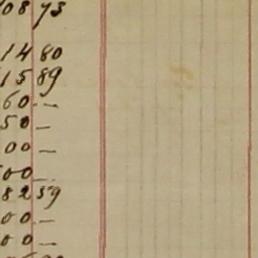 08 73
14 80
15 89
60 —
50 —
00 —
00 —
82 59
00 —
00 —